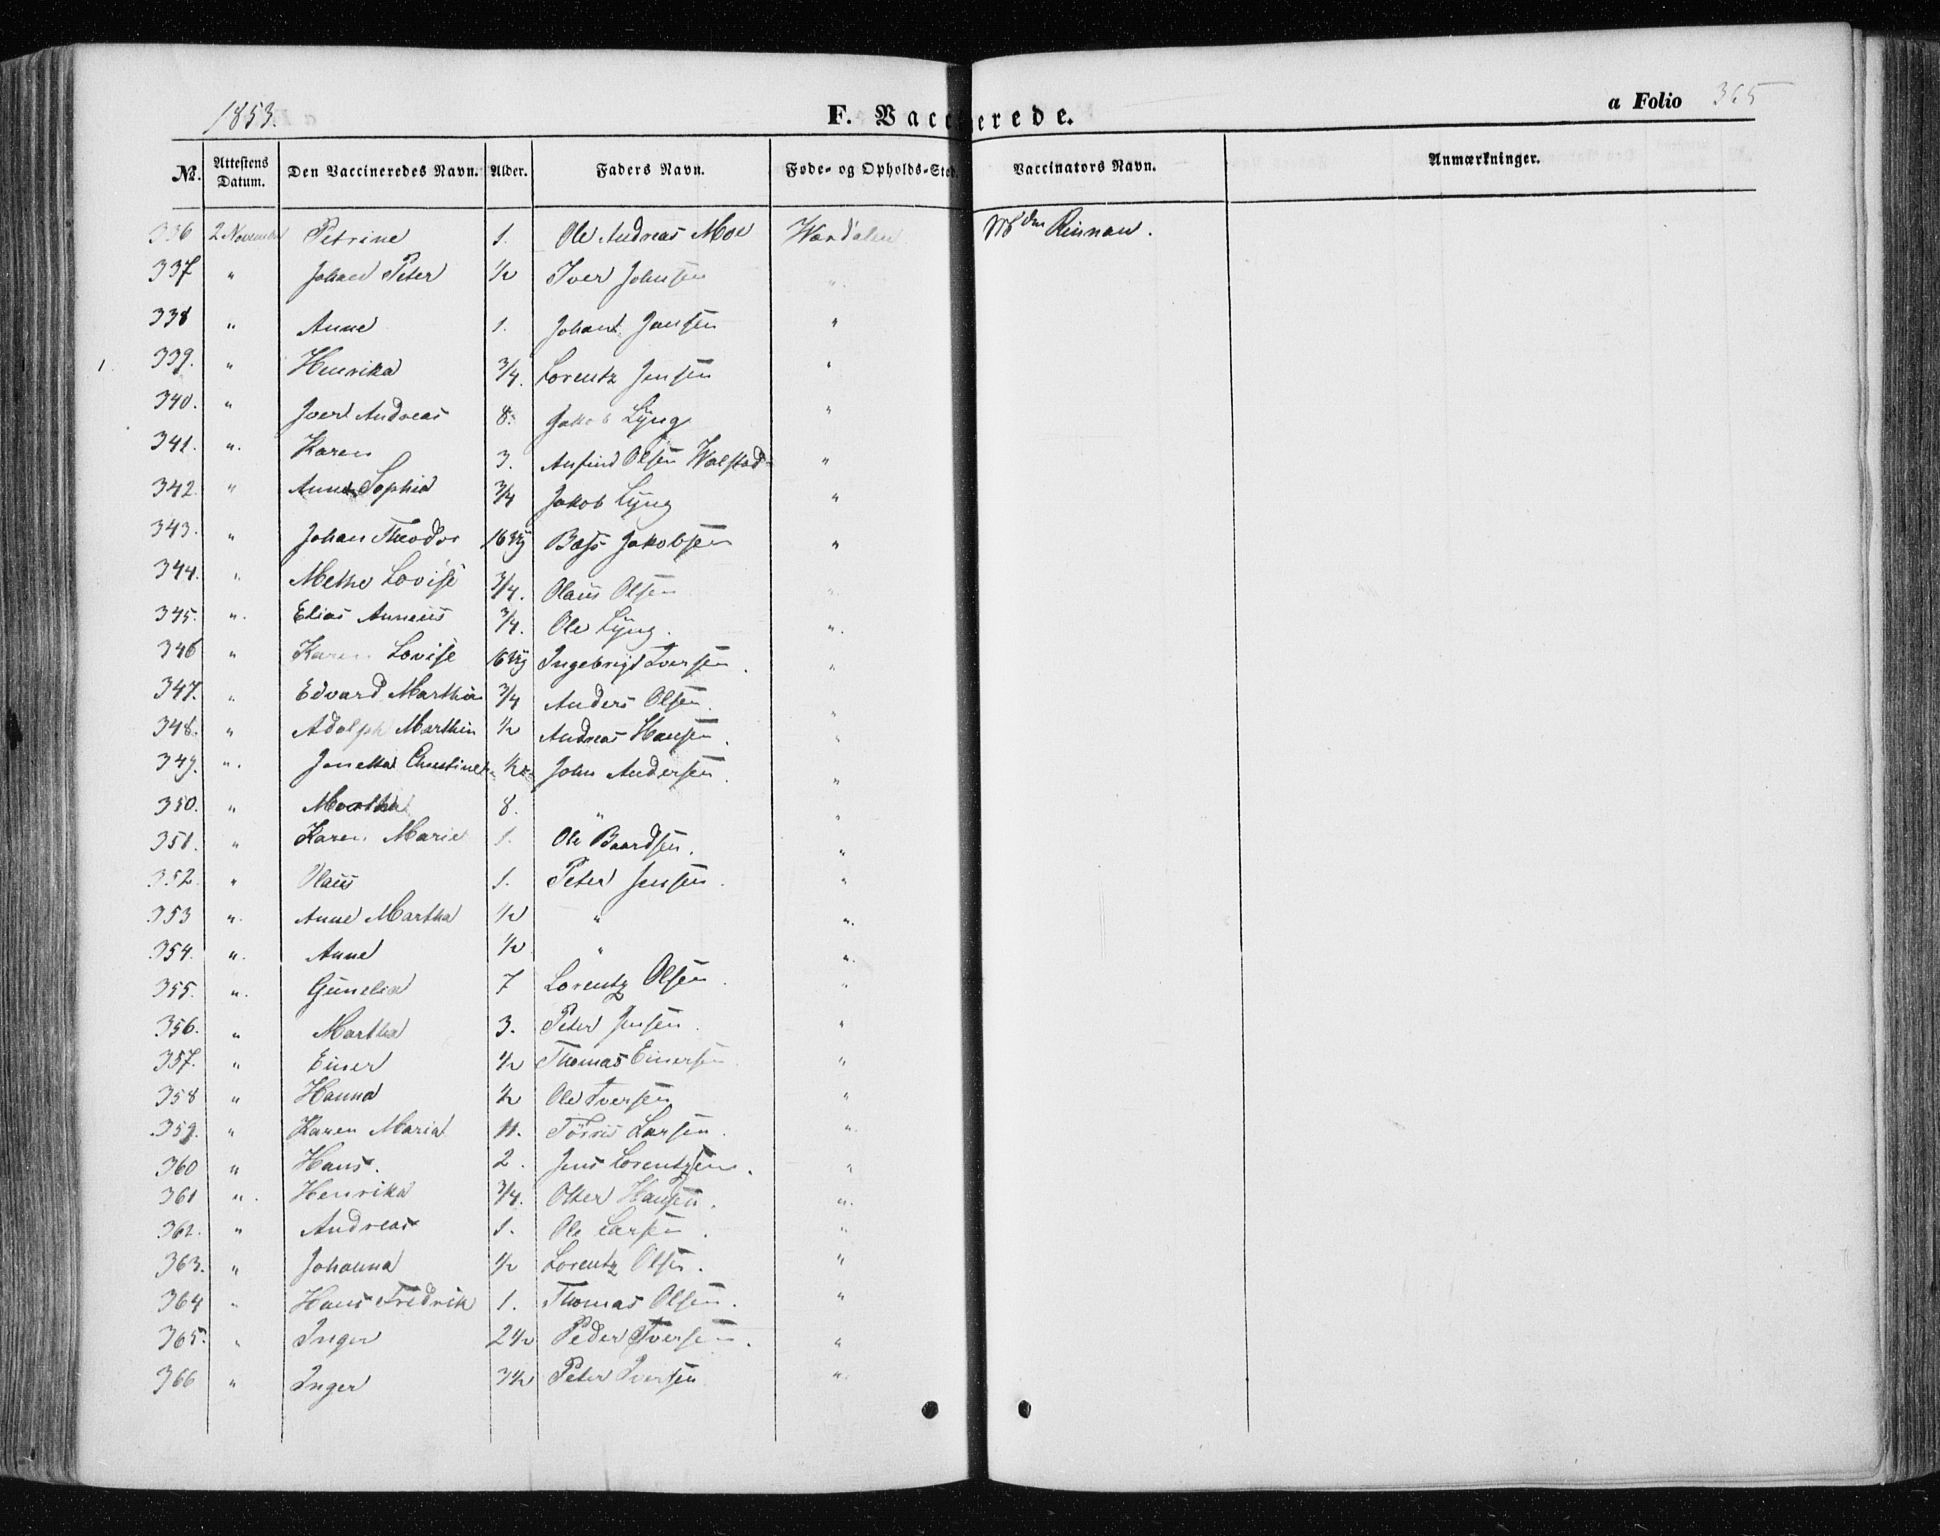 1853. F. Vaccinerede. a Folio 365
No. Attestens Datum. Den Vaccineredes Navn. Alder. Faders Navn. Føde- og Opholds-Sted. Vaccinators Navn. Anmærkninger.
336 2 November Petrine 1. Ole Andreas Moe Wærdalen Rinnan.
337 " Johan Peter ½ Iver Johnsen "
338 " Anne 1. Johan Jansen "
339. " Henrika ¾. Lorentz Jensen "
340. " Iver Andreas 8. Jakob Lÿng "
341. " Karen 3. Anfind Olsen Walstad "
342. " Anne Sophia ¾ Jakob Lÿng "
343. " Johan Theodor 16 Jakobsen "
344. " Methe Lovise ¾. Olaus Olsen "
345. " Elias Anneus ¾. Ole Lÿng. "
346 " Karen Lovise 16 Ingebrigt Iversen. "
347. " Edvard Marthin ¾ Anders Olsen. "
348. " Adolph Marthin ½ Andreas Hansen. "
349. " Jonetta Christine ½ John Andersen. "
350. " Martha 8. " "
351. " Karen Marie 1. Ole Baardsen. "
352. " Olaus 1. Peter Jensen. "
353 " Anne Martha ½ " "
354. " Anne ½ " "
355. " Gunelia 7 Lorentz Olsen. "
356. " Martha 3. Peter Jensen. "
357. " Einer ½ Thomas Einersen "
358 " Hanna ½ Ole Iversen "
359. " Karen Maria 11. Törris Larsen. "
360 " Hans. 2. Jens Lorentzen. "
361 " Henrika ¾. Otter Hansen. "
362. " Andreas 1. Ole Larsen. "
363. " Johanna ½ Lorentz Olsen. "
364 " Hans Fredrik 1. Thomas Olsen. "
365. " Inger 2½ Peder Iversen. "
366 " Inger 3½ Peter Iversen "